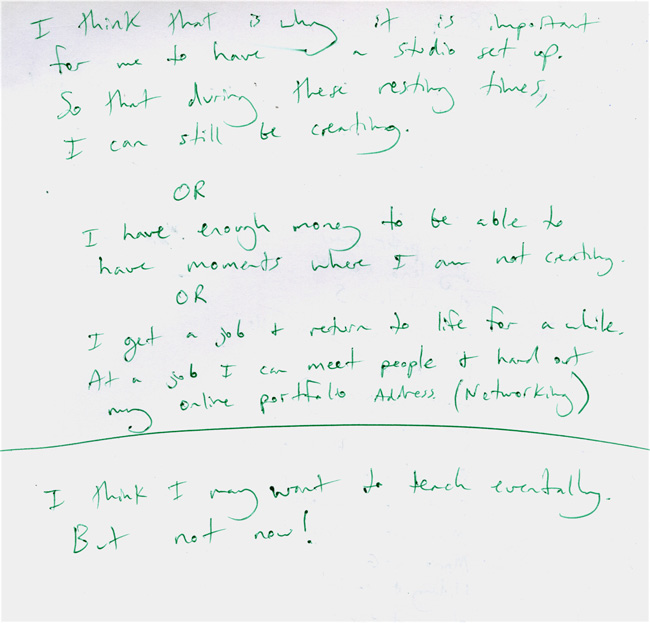 I think that is why it is important
for me to have a studio set up.
So that during these resting times,
I can still be creating.
OR
I have enough money to be able to
have moments where I am not creating.
OR
I get a job + return to life for a while.
At a job I can meet people + hand out
my online portfolio Address (Networking)
I think I may want to teach eventally.
But not now!